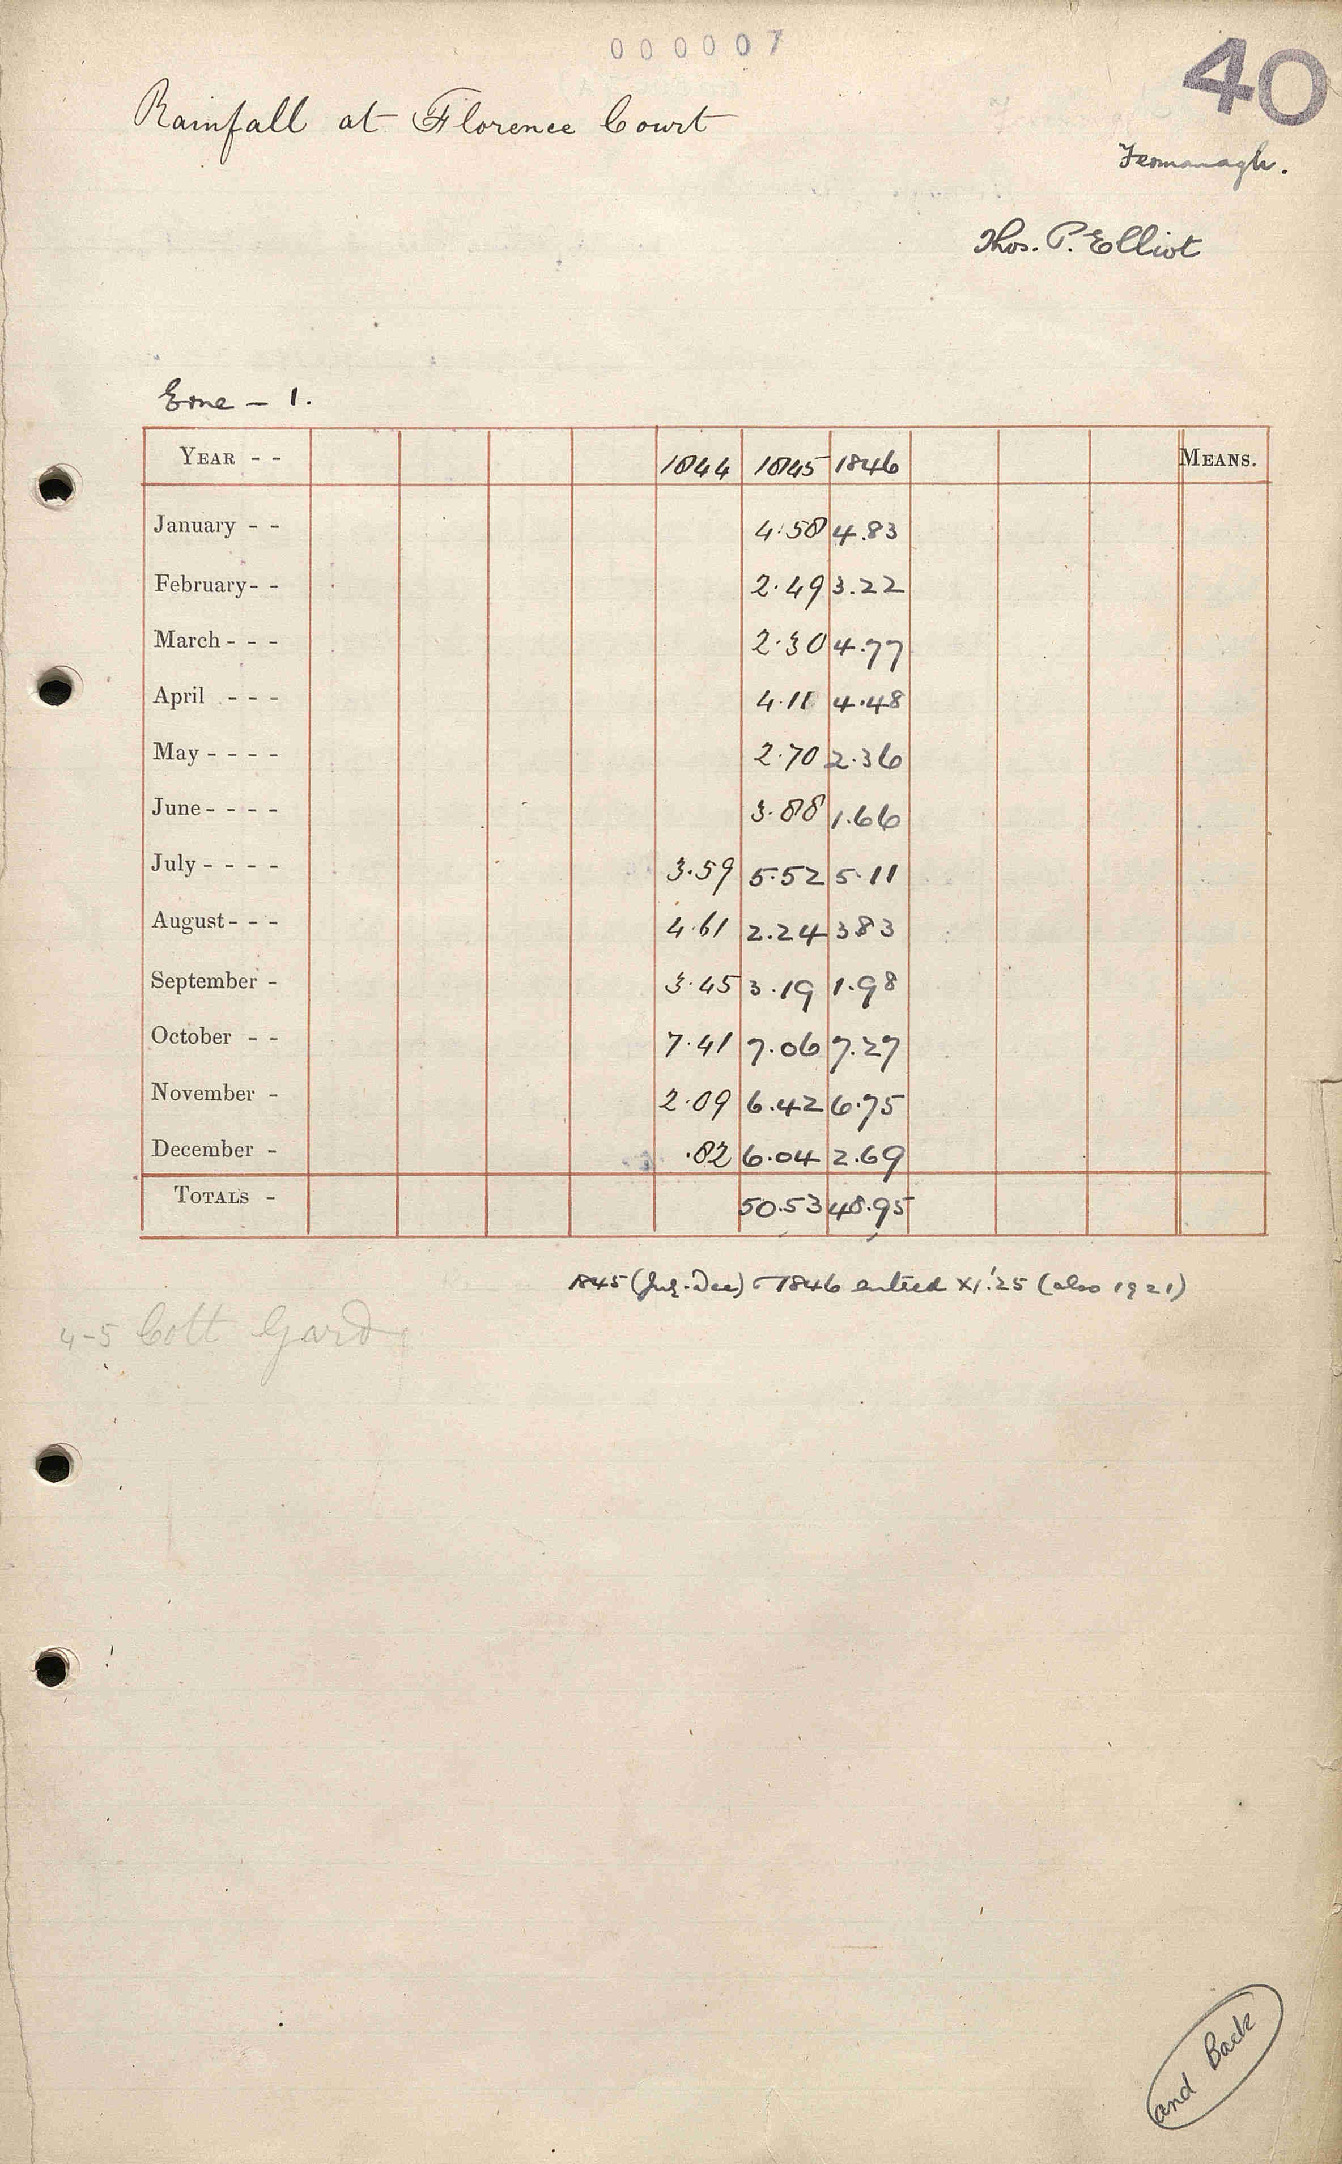 000007
40
Rainfall at Florence Court
Fermanagh.
Thos. P. Elliot
Erne - 1.
YEAR - - 1844 1845 1846 MEANS.
January - - 4.58 4.83
February - - 2.49 3.22
March - - - 2.30 4.77
April - - - 4.11 4.48
May - - - - 2.70 2.36
June - - - - 3.88 1.66
July - - - - 3.59 5.52 5.11
August - - - 4.61 2.24 3 83
September - 3.45 3.19 1.98
October - - 7.41 7.06 7.27
November - 2.09 6.42 6.75
December - .82 6.04 2.69
TOTALS - 50.53 48.95
1845 (July-Dec) - 1846 entered XI.'25 (also 1921)
4-5 Cott Gard
and Back